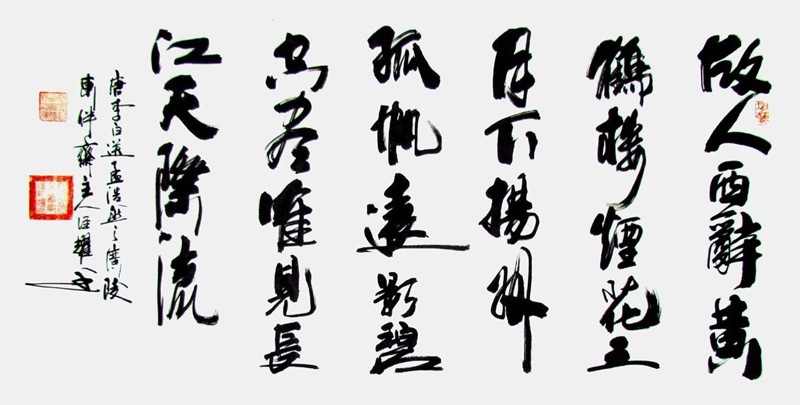 故人西辭黄
鶴樓煙花三
月下揚州
孤帆遠影碧
空盡唯見長
江天際流
唐李白送孟浩然之廣陵
東泮齋主人汪耀